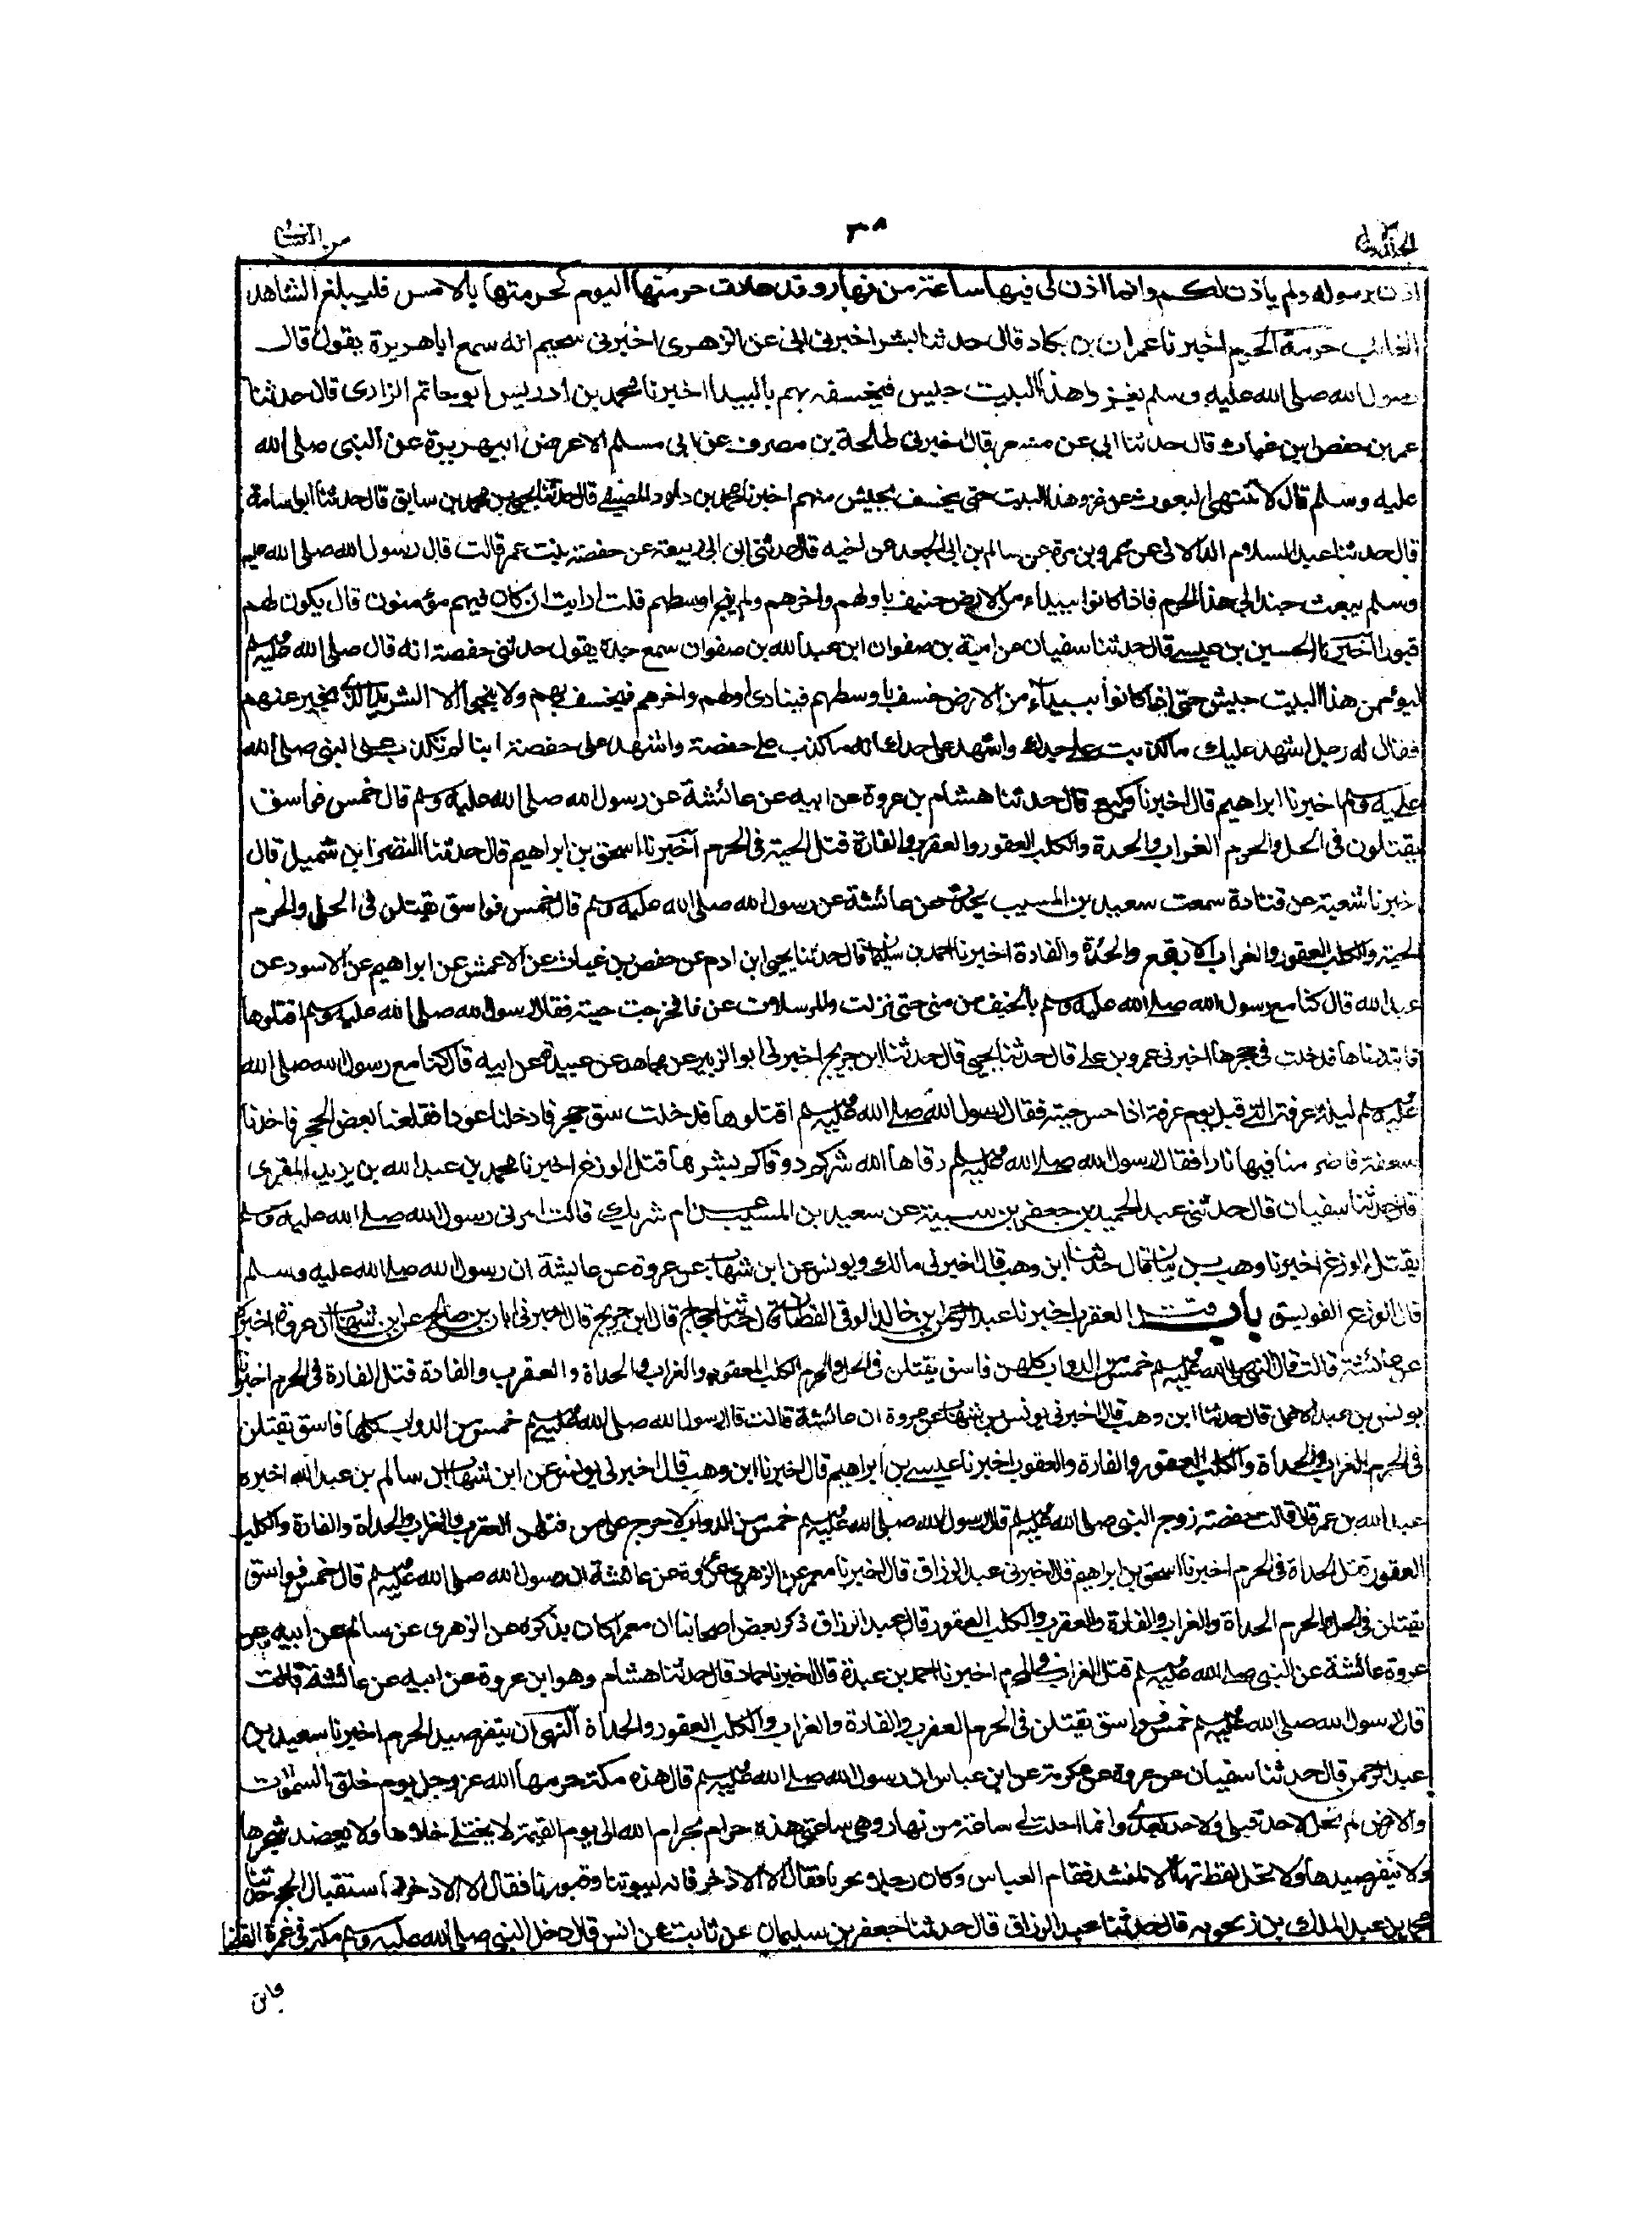 من النسائي
٣٠٨
اذن لرسوله ولم ياذن لكم وانما اذن لى فيها ساعة من نهار وقد عادت حرمتها اليوم كحرمتها بالامس فليبلغ الشاهد
الغائب حرمة الحرم اخبرنا عمران بن بكار قال حدثنا بشر اخبرنى ابى عن الزهرى اخبرنى سحيم انه سمع اباهريرة يقول قال
رسول الله صلى الله عليه وسلم يغزوا هذا البيت جيش فيخسف بهم بالبيدا اخبرنا محمد بن ادريس ابو حاتم الرازى قال حدثنا
عمر بن حفص ابن غياث قال حدثنا ابى عن مسعر قال اخبرنى طلحة بن مصرف عن ابى مسلم الاغر عن ابيهريرة عن النبى صلى الله
عليه وسلم قال لا تنتهى البعوث عن غزو هذا البيت حتى يخسف بجيش منهم اخبرنا محمد بن داود المصيصى قال حدثنا يحيى بن محمد بن سابق قال حدثنا ابو اسامة
قال حدثنا عبد السلام الدالانى عن عمرو بن مرة عن سالم بن ابى الجعد عن اخيه قال حدثنى ابن ابى ربيعة عن حفصة بنت عمر قالت قال رسول الله صلى الله عليه
وسلم يبعث جند الى هذا الحرم فاذا كانوا ببيداء من الارض خسف باولهم واخرهم ولم ينج اوسطهم قلت ارايت ان كان فيهم مؤمنون قال يكون لهم
قبورا اخبرنا الحسين بن عيسى قال حدثنا سفيان عن امية بن صفوان ابن عبد الله بن صفوان سمع جده يقول حدثنى حفصة انه قال صلى الله عليه وسلم
ليؤمن هذا البيت جيش حتى اذا كانوا ببيداء من الارض خسف باوسطهم فينادى اولهم واخرهم فيخسف بهم ولا ينجى الا الشريد الذى يخبر عنهم
فقال له رجل اشهد عليك ما كذبت على جدك واشهد على جدك انه ما كذب على حفصة واشهد على حفصة انها لم تكذب على النبى صلى الله
عليه وسلم اخبرنا ابراهيم قال اخبرنا وكيع قال حدثنا هشام بن عروة عن ابيه عن عائشة عن رسول الله صلى الله عليه وسلم قال خمس فواسق
يقتلون فى الحل والحرم الغراب والحدة والكلب العقور والعقرب والفارة قتل الحية فى الحرم اخبرنا اسحق بن ابراهيم قال حدثنا النضر ابن شميل قال
اخبرنا شعبة عن قتادة سمعت سعيد بن المسيب يحدث عن عائشة عن رسول الله صلى الله عليه وسلم قال خمس فواسق يقتلن فى الحل والحرم
الحية والكلب العقور والغراب الابقع والحدة والفارة اخبرنا احمد بن سليمان قال حدثنا يحيى ابن ادم عن حفص بن غياث عن الاعمش عن ابراهيم عن الاسود عن
عبد الله قال كنا مع رسول الله صلى الله عليه وسلم بالخيف من منى حتى نزلت والمرسلات عرفا فخرجت حية فقال رسول الله صلى الله عليه وسلم اقتلوها
فابتدرناها فدخلت فى جحرها اخبرنى عمرو بن على قال حدثنا يحيى قال حدثنا ابن جريج اخبرنى ابو الزبير عن مجاهد عن عبيدة عن ابيه قال كنا مع رسول الله صلى الله
عليه وسلم ليلة عرفة التى قبل يوم عرفة اذا حس حية فقال رسول الله صلى الله عليه وسلم اقتلوها فدخلت شق جحر فادخلنا عودا فقلعنا بعض الحجر فاخذنا
سعفة فاضرمنا فيها نارا فقال رسول الله صلى الله عليه وسلم وقاها الله شركم ووقاكم شرها قتل الوزغ اخبرنا محمد بن عبد الله بن يزيد المقرى
قال حدثنا سفيان قال حدثنى عبد الحميد بن جعفر بن سبية عن سعيد بن المسيب عن ام شريك قالت امرنى رسول الله صلى الله عليه وسلم
بقتل الوزغ اخبرنا وهب بن بيان قال حدثنا ابن وهب قال اخبرنى مالك ويونس عن ابن شهاب عن عروة عن عايشة ان رسول الله صلى الله عليه وسلم
قال الوزغ الفويسق باب قتل العقرب اخبرنا عبد الرحمن ابن خالد الرقى القطان قال حدثنا حجاج قال ابن جريج قال اخبرنى ابان بن صالح عن ابن شهاب ان عروة اخبره
عن عائشة قالت قال النبى صلى الله عليه وسلم خمس من الدواب كلهن فاسق يقتلن فى الحل والحرم الكلب العقور والغراب والحداة والعقرب والفارة قتل الفارة فى الحرم اخبرنا
يونس بن عبد الاعلى قال حدثنا ابن وهب قال اخبرنى يونس بن شهاب عن عروة ان عائشة قالت قال رسول الله صلى الله عليه وسلم خمس من الدواب كلها فاسق يقتلن
فى الحرم الغراب والحداة والكلب العقور والفارة والعقرب اخبرنا عيسى بن ابراهيم قال اخبرنا ابن وهب قال اخبرنى يونس عن ابن شهاب ان سالم بن عبد الله اخبره
عبد الله بن عمر قال قالت حفصة زوج النبى صلى الله عليه وسلم قال رسول الله صلى الله عليه وسلم خمس من الدواب لا حرج على من قتلهن العقرب والغراب والحداة والفارة والكلب
العقور قتل الحداة فى الحرم اخبرنا اسحق بن ابراهيم قال اخبرنى عبد الرزاق قال اخبرنا معمر عن الزهرى عن عروة عن عائشة ان رسول الله صلى الله عليه وسلم قال خمس فواسق
يقتلن فى الحل والحرم الحداة والغراب والفارة والعقرب والكلب العقور قال عبد الرزاق ذكر بعض اصحابنا ان معمرا كان يذكره عن الزهرى عن سالم عن ابيه وعن
عروة عائشة عن النبى صلى الله عليه وسلم قتل الغراب فى الحرم اخبرنا احمد بن عبدة قال اخبرنا حماد قال حدثنا هشام وهو ابن عروة عن ابيه عن عائشة قالت
قال رسول الله صلى الله عليه وسلم خمس فواسق يقتلن فى الحرم العقرب والفارة والغراب والكلب العقور والحداة النهى ان ينفر صيد الحرم اخبرنا سعيد بن
عبد الرحمن قال حدثنا سفيان عن عروة عن عكرمة عن ابن عباس ان رسول الله صلى الله عليه وسلم قال هذه مكة حرمها الله عز وجل يوم خلق السموات
والارض لم تحل لاحد قبلى ولا حد بعدى وانما احلت لى ساعة من نهار وهى ساعتى هذه حرام بحرام الله الى يوم القيمة لا يختلى خلاوها ولا يعضد شجرها
ولا ينفر صيدها ولا تحل لقطتها الا لمنشد فقام العباس وكان رجلا مجربا فقال الا الاذخر فانه لبيوتنا وقبورنا فقال الا الاذخر استقبال الحج حدثنا
محمد بن عبد الملك بن زنجويه قال حدثنا عبد الرزاق قال حدثنا جعفر بن سليمان عن ثابت عن انس قال دخل النبى صلى الله عليه وسلم مكة فى عمرة القضا